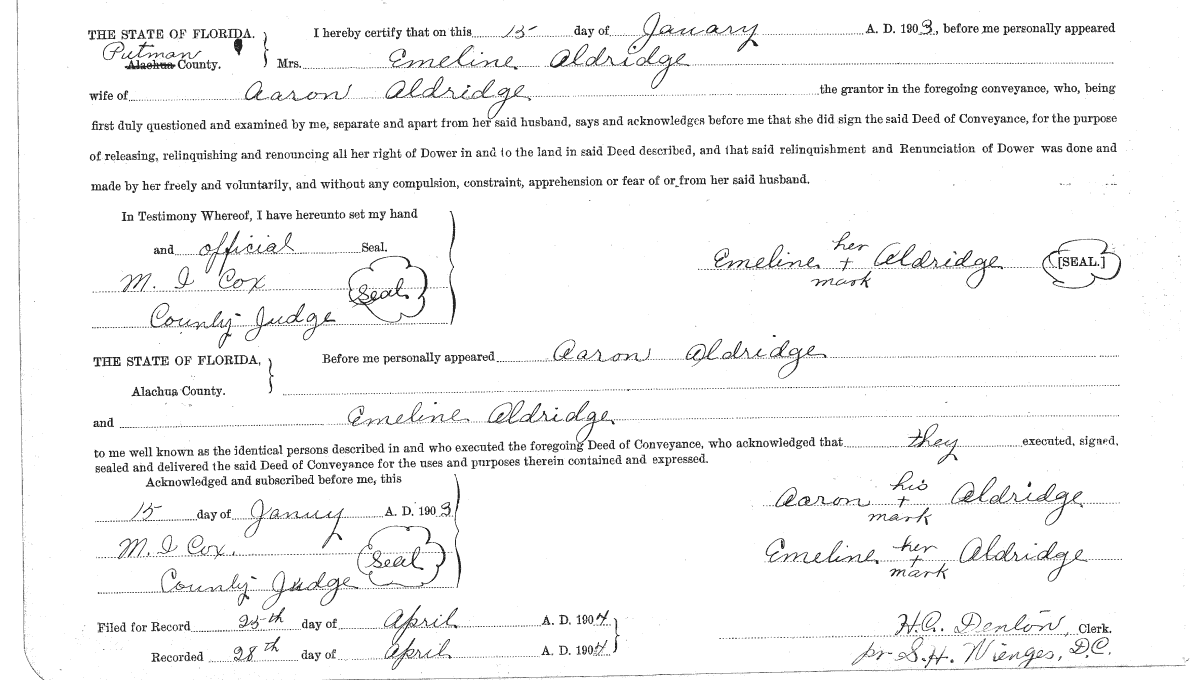 THE STATE OF FLORIDA. I hereby certify that on this 15 day of January A. D. 1903, before me personally appeared
Putman
Alachua County. Mrs. Emeline Aldridge
wife of Aaron Aldridge the grantor in the foregoing conveyance, who, being
first duly questioned and examined by me, separate and apart from her said husband, says and acknowledges before me that she did sign the said Deed of Conveyance, for the purpose
of releasing, relinquishing and renouncing all her right of Dower in and to the land in said Deed described, and that said relinquishment and Renunciation of Dower was done and
made by her freely and voluntarily, and without any compulsion, constraint, apprehension or fear of or from her said husband.
In Testimony Whereof, I have hereunto set my hand
and official Seal.
M. I Cox Seal
County Judge
her
Emeline + Aldridge [SEAL.]
mark
THE STATE OF FLORIDA, Before me personally appeared Aaron Aldridge
Alachua County.
and Emeline Aldridge
to me well known as the identical persons described in and who executed the foregoing Deed of Conveyance, who acknowledged that they executed, signed,
sealed and delivered the said Deed of Conveyance for the uses and purposes therein contained and expressed.
Acknowledged and subscribed before me, this
15 day of Januy A. D. 1903
M. I Cox. Seal
County Judge
his
Aaron + Aldridge
mark
her
Emeline + Aldridge
mark
Filed for Record 25th day of April A. D. 1904
Recorded 28th day of April A. D. 1904
H. G. Denton, Clerk.
pr S. H. Wienges, D.C.